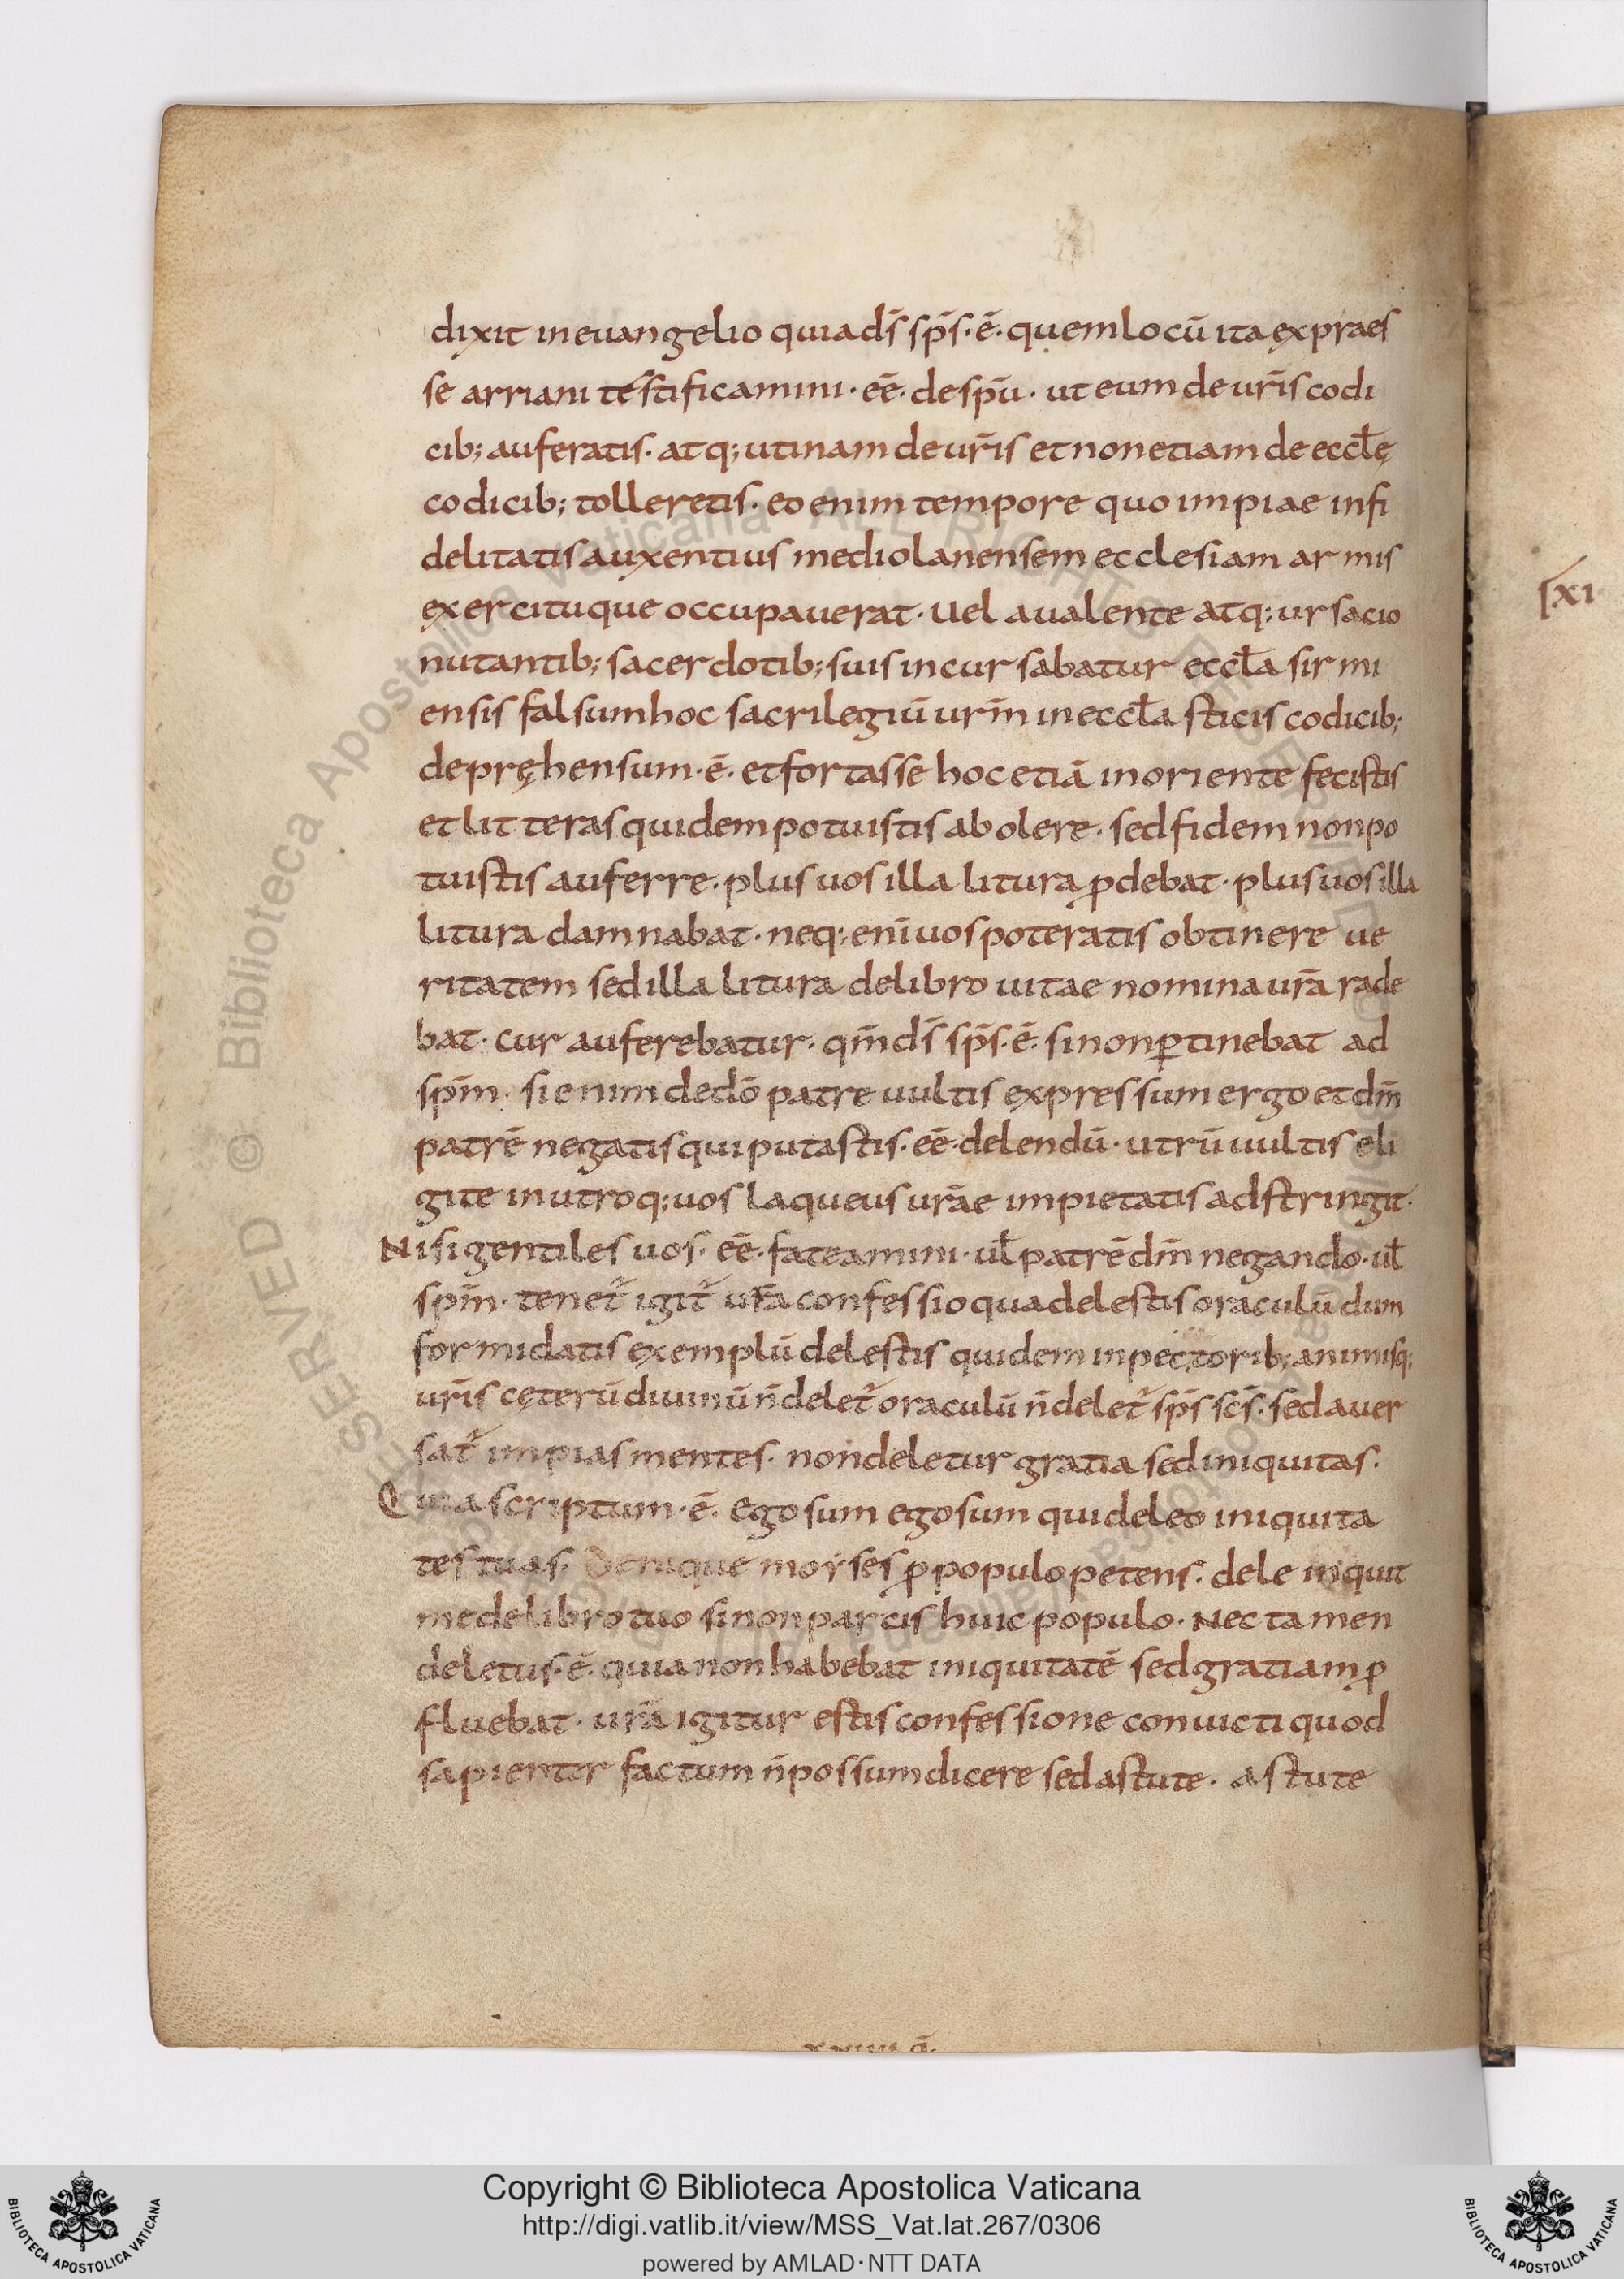 dixit in euangelio quia d̄s sp̄s· ē· quem locū ita expraes
se arriani testificamini· eē· de sp̄u· ut eum de ur̄is codi
cib; auferatis· atq; utinam de ur̄is et non etiam de eccl̄ę
codicib; tolleretis· eo enim tempore quo impiae infi
delitatis auxentius mediolanensem ecclesiam armis
exercituque occupauerat· Uel a ualente atq; ursacio
nutantib; sacerdotib; suis incursabatur eccl̄a sirmi
ensis falsum hoc sacrilegiū ur̄m in eccl̄asticis codicib;
depręhensum· ē· et fortasse hoc etiā in oriente fecistis
et litteras quidem potuistis abolere· sed fidem non po
tuistis auferre· plus uos illa litura ꝓdebat· plus uos illa
litura damnabat· neq; enī uos poteratis obtinere ue
ritatem sed illa litura de libro uitae nomina ur̄a rade
bat· cur auferebatur· qm̄ d̄s sp̄s· ē· si non ꝑtinebat ad
sp̄m· si enim de dō patre uultis expressum ergo et dm̄
patrē negatis qui putastis· eē· delendū· utrū uultis eli
gite in utroq; uos laqueus ur̄ae impietatis adstringit·
Nisi gentiles uos· eē· fateamini· ul̄ patrē dm̄ negando· ul̄
sp̄m· tenet᷑ igit᷑ ur̄a confessio qua delestis oraculū dum
formidatis exemplū delestis quidem in pectorib; animisq;
ur̄is cęterū diuinū n̄ delet᷑ oraculū n̄ delet᷑ sp̄s sc̄s· sed auer
sat᷑ impias mentes· non deletur gratia sed iniquitas·
Quia scriptum· ē· ego sum ego sum qui deleo iniquita
tes tuas· Denique moyses ꝓ populo petens· dele inquit
me de libro tuo si non parcis huic populo· Nec tamen
deletus· ē· quia non habebat iniquitatē sed gratiam ꝓ
fluebat· ur̄a igitur estis confessione conuicti quod
sapienter factum n̄ possum dicere sed astute· astute
Copyright © Biblioteca Apostolica Vaticana
http://digi.vatlib.it/view/MSS_Vat.lat.267/0306
powered by AMLAD·NTT DATA
BIBLIOTECA APOSTOLICA VATICANA
BIBLIOTECA APOSTOLICA VATICANA